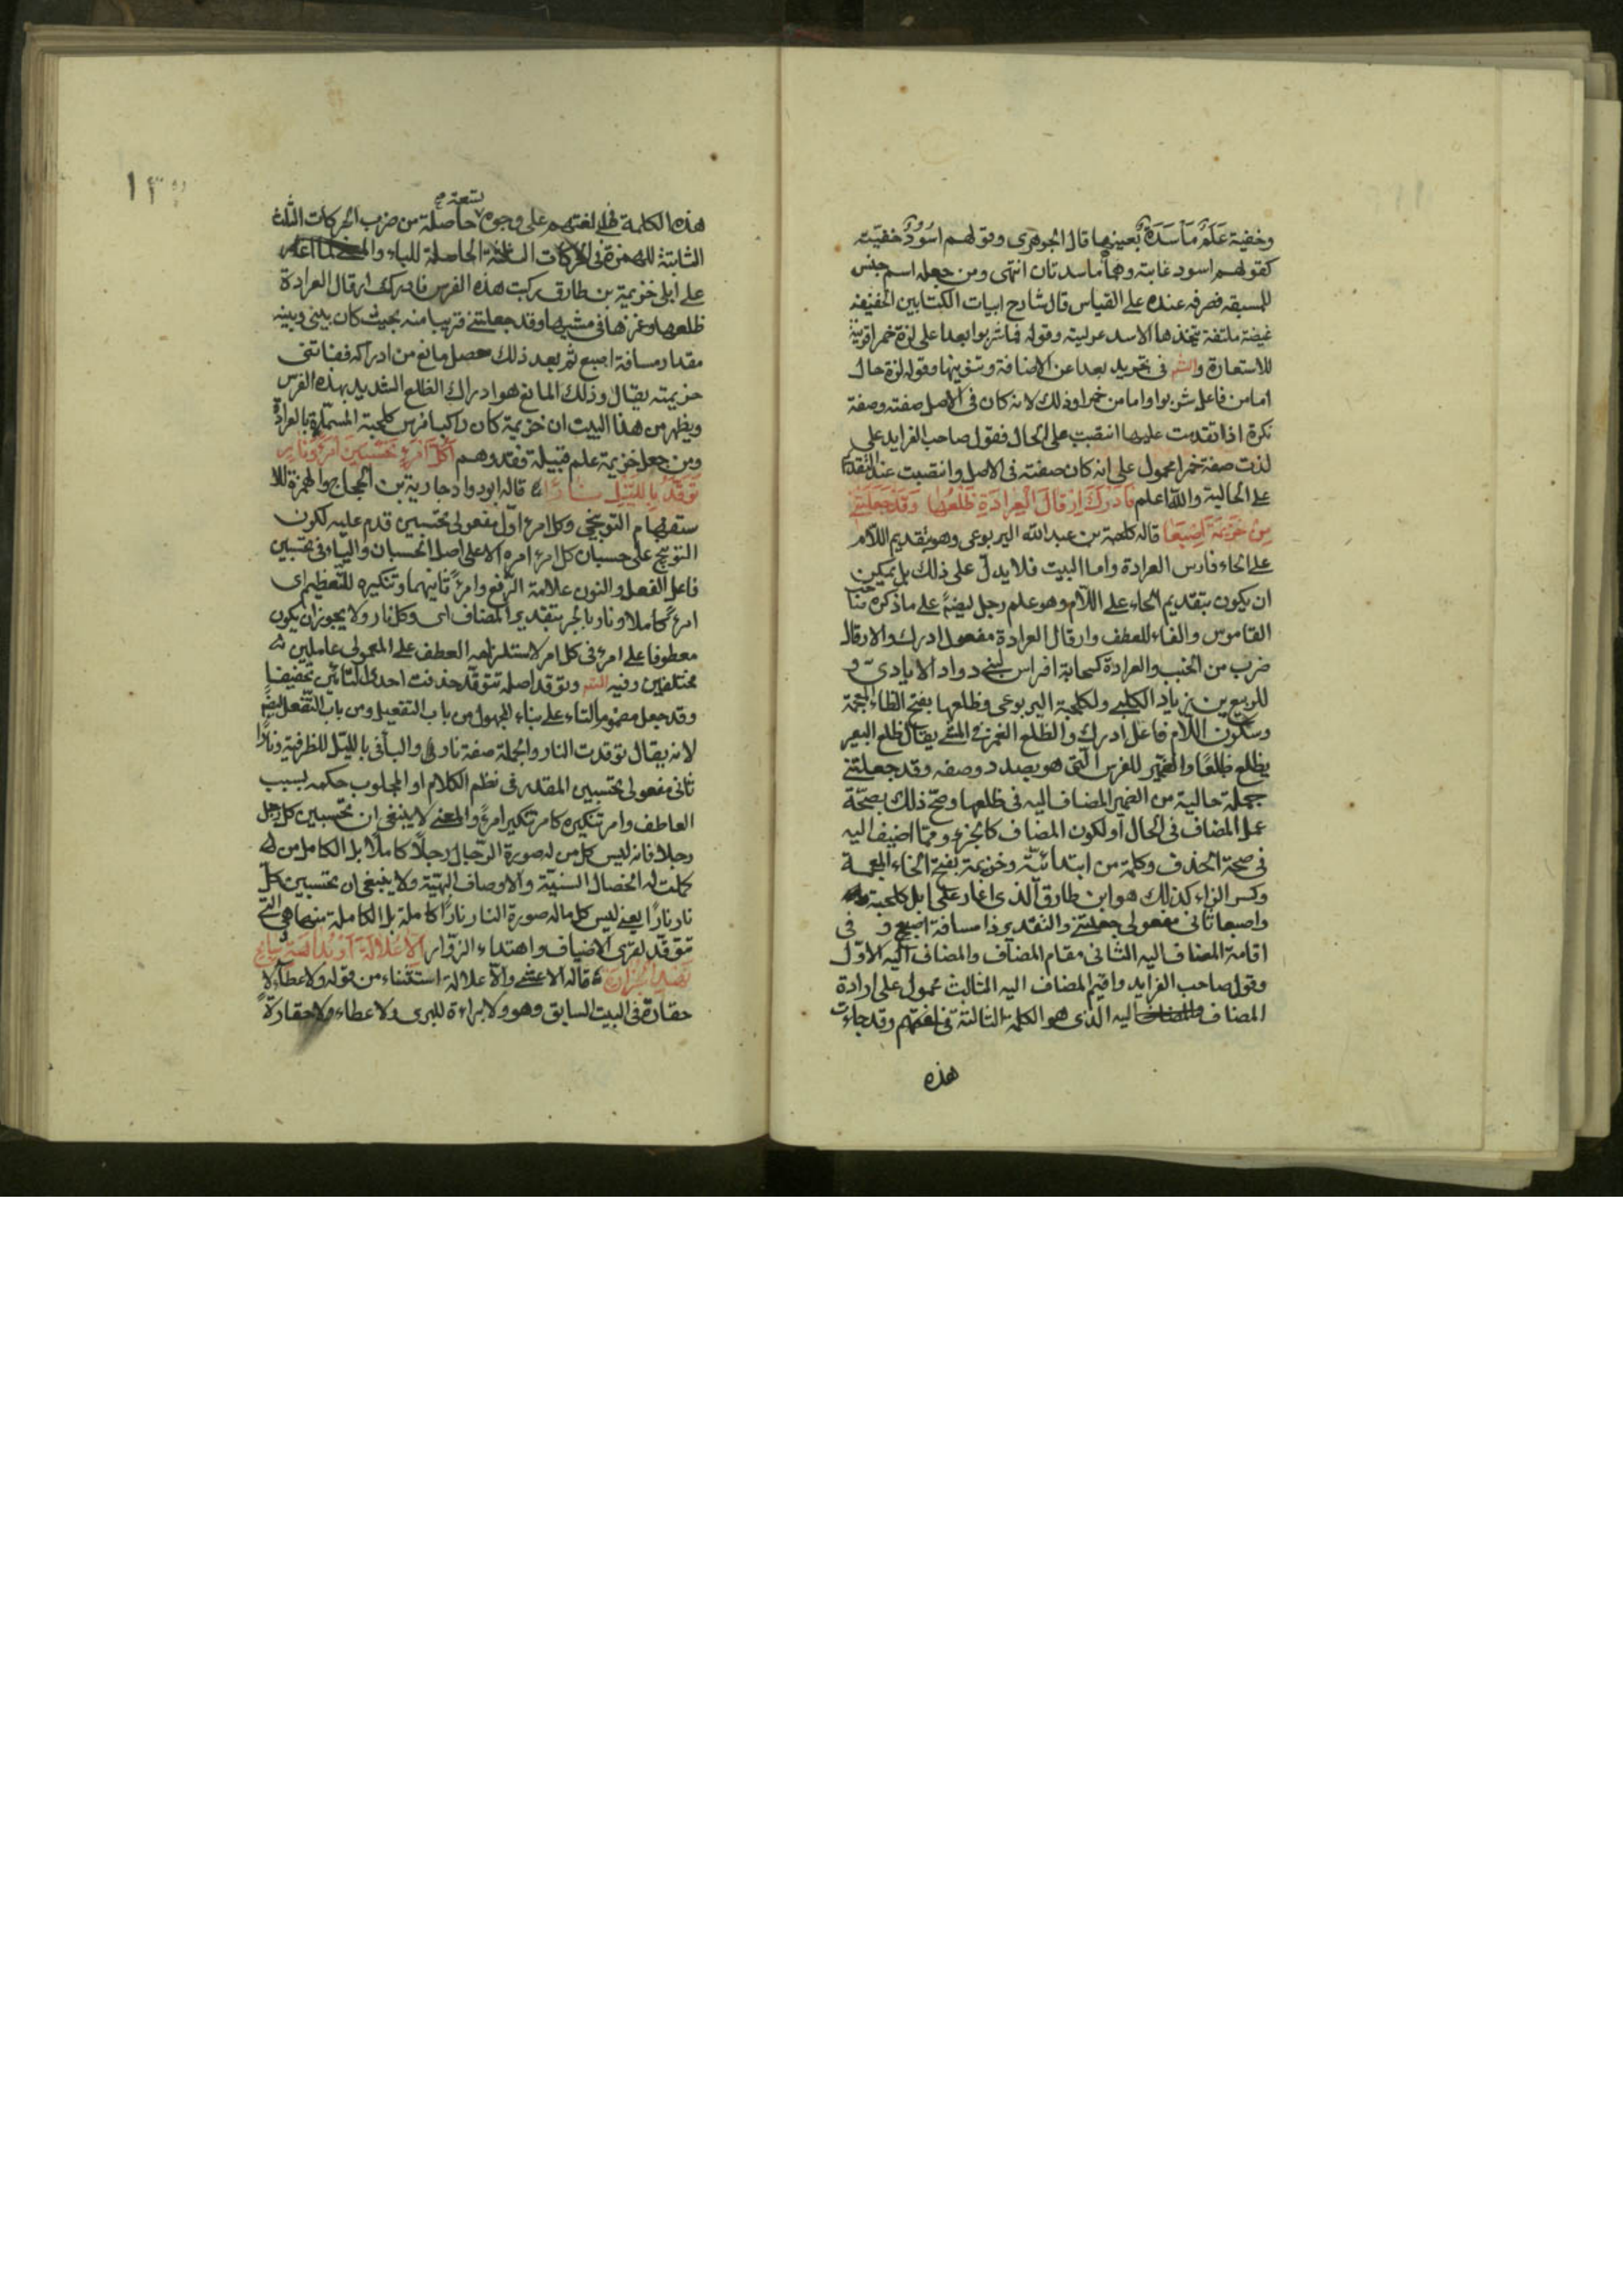 وخفية عَلَمُ مَأسَدَةٍ بعينها قال الجوهرى وقولهم اُسُوُد خفيّة
كقولهم اسود غابة وهما ماسدتان انتهى ومن جعله اسم جنس
للمسبقه فصرفه عنده على القياس قال شارح ابيات الكتابين الخفيفه
غيضة ملتفة يتخذها الاسد عرليته وقوله فماشربوا بعدا على لذة خمرا قرينة
للاستعارة والشم فى تجريد بعدا عن الاضافة وتنوينها وقوله لذة حال
امامن فاعل شربوا وامامن خمرا وذلك لانه كان فى الاصل صفته وصفة
نكرة اذا تقدمت عليها انتصبت على الحال فقول صاحب الفرايد على
لذت صفة خمرا محمول على انه كان صفته فى الاصل وانتصبت عند التقدم
على الحالية والله اعلم فَأَدرَكَ اِرْقالَ العَرادَةِ ظَلْعُها وَقَدْ جَعَلَتْنى
مِنْ خَزِيمَةَ اِصْبَعَا قاله كلحبة بن عبد الله اليربوعى وهو بتقديم اللام
على الحاء فارس العرادة واما البيت فلا يدلّ على ذلك بل يمكن
ان يكون بتقديم الحاء على اللام وهو علم رجل ايضا على ما ذكره صاحب
القاموس والفاء للعطف وارقال العرادة مفعول ادرك والارقال
ضرب من الخبب والعرادة كسحابة افراس لبنى دواد الايادىّ و
للربيع بن زياد الكلبى ولكلحبة اليربوعى وظلعها بفتح الظاء المعجمة
وسكون اللام فاعل ادرك والظلع الغمز فى المشى يقال ظلع البعير
يظلع ظلعًا والضمير للفرس التى هو بصدد وصفه وقد جعلتنى
جملة حالية من الضمير المضاف اليه فى ظلعها وصحّ ذلك بصحّة
عمل المضاف فى الحال او لكون المضاف كالجزء وممّا اضيف اليه
فى صحة الحذف وكلمة من ابتدائيّة وخزيمة بفتح الخاء المعجمة
وكسر الزاء كذلك هو ابن طارق الّذى اغار على ابل كلحبة
واصبعا ثانى مفعولى جعلتنى والتقدير ذا مسافة اصبع و فى
اقامة المضاف اليه الثانى مقام المضاف والمضاف اليه الاوّل
وقول صاحب الفرايد واقيم المضاف اليه الثالث محمول على ارادة
المضاف اليه الذى هو الكلمة الثالثة فى لغتهم وقد جاءت
هذه
١٣
تسعة صح
هذه الكلمة فى لغتهم على وجوه حاصلة من ضرب الحركات الثلث
الثابتة للهمزة فى الحركات الثلاثة الحاصلة للباء والمعنى لما اغار
على ابلى خزيمة بن طارق ركبت هذه الفرس فادرك ارقال العرادة
ظلعها وغمزها فى مشيها وقد جعلتنى قريبا منه بحيث كان بينى وبينه
مقدار مسافة اصبع ثم بعد ذلك حصل مانع من ادراكه ففاتنى
خزيمته يقال وذلك المانع هو ادراك الظلع الشديد بهذه الفرس
ويظهر من هذا البيت ان خزيمة كان راكبا فرس كلحبة المسمّاة بالعرادة
ومن جعل خزيمة علم قبيلة فقد وهم اَكُلَّ امْرِءٍ تَحْسَبينَ امْرءً وَنارٍ
تَوَقَّدُ بِاللَّيْلِ نارًا قاله ابو دواد جارية بن الحجاج والهمزة للا
ستفهام التوبيخى وكل امرء اوّل مفعولى تحسبين قدم عليه لكون
التوبيخ على حسبان كل امرء امرء لا على اصل الحسبان والياء فى تحسبين
فاعل الفعل والنون علامة الرّفع وامرءً ثانيهما وتنكيره للتّعظيم اى
امرءً كاملا ونار بالجر بتقدير المضاف اى وكل نار ولا يجوز ان يكون
معطوفا على امرء فى كل امر لاستلزامه العطف على المعمولى عاملين
مختلفين وفيه الشم وتوقد اصله تتوقّد حذفت احدى التائين تخفيفا
وقد جعل مضموم التاء على بناء المجهول من باب التفعيل ومن باب التّفعل ايضًا
لانه يقال توقدت النار والجملة صفة نار والبا فى بالليّل للظرفية ونارًا
ثانى مفعولى تحسبين المقدر فى نظم الكلام او المجلوب حكمه بسبب
العاطف وامر تنكيره كامر تنكير امرءً والمعنى لا ينبغى ان تحسبين كل رجل
رجلا فانه ليس كل من له صورة الرّجال رجلًا كاملا بل الكامل من
كملت له الخصال السنيّة والاوصاف البهيّة ولا ينبغى ان تحسبين كلّ
نار نارًا يعنى ليس كل ماله صورة النار نارًا كاملة بل الكاملة منها هى التى
توقد لقرى الاضياف واهتداء الزوّار اِلاّ عُلالَةَ اَوْ بُداهَةَ سابِحٍ
نَهْدِ الجُزارَهْ قاله الاعشى والاّ علالة استثناء من قوله ولا عطاء لا
حفارة فى البيت السابق وهو ولا براءة للبرى ولا عطاء ولا حفارة